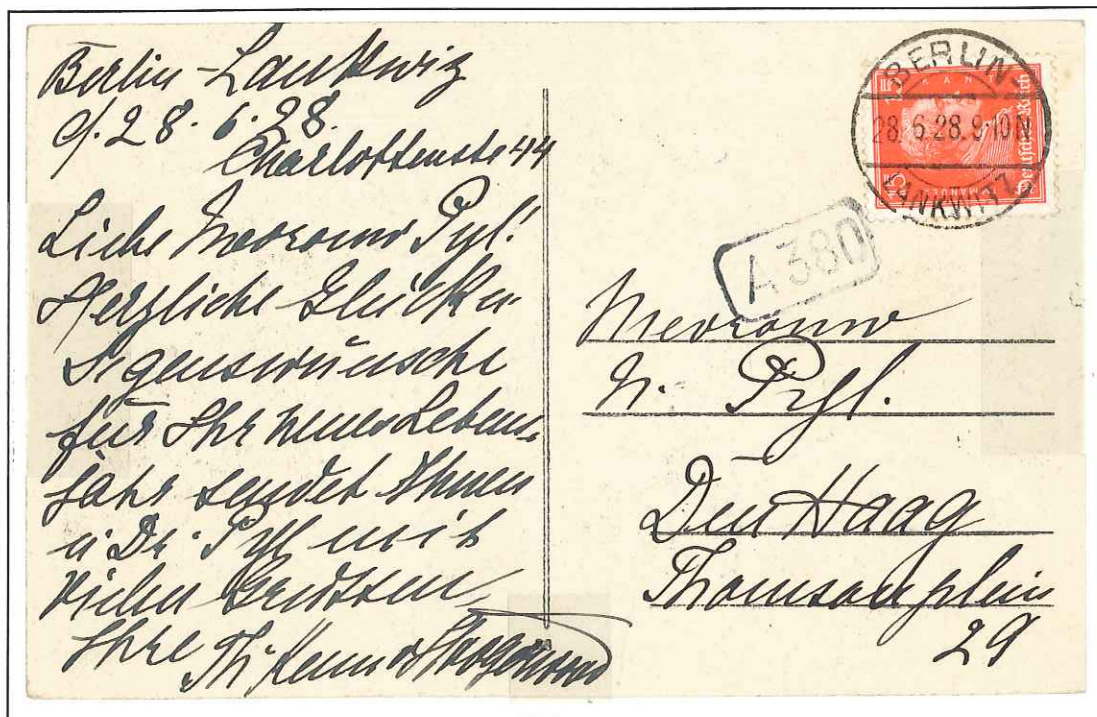 Berlin-Lankwiz
d. 28.6.28.
Charlottenstr 44
Liebe Mevrouw Pyl!
Herzliche Glück u
Segenswünsche
für Ihr neues Lebens-
jahr sendet Ihnen
u Dr. Pyl mit
vielen Grüssen
Ihre
BERLIN
28.6.28.9-10N
LANKWITZ
15 KANT 15
Deutsches Reich
A 380
Mevrouw
N. Pyl.
Den Haag
Thomsonplein
29